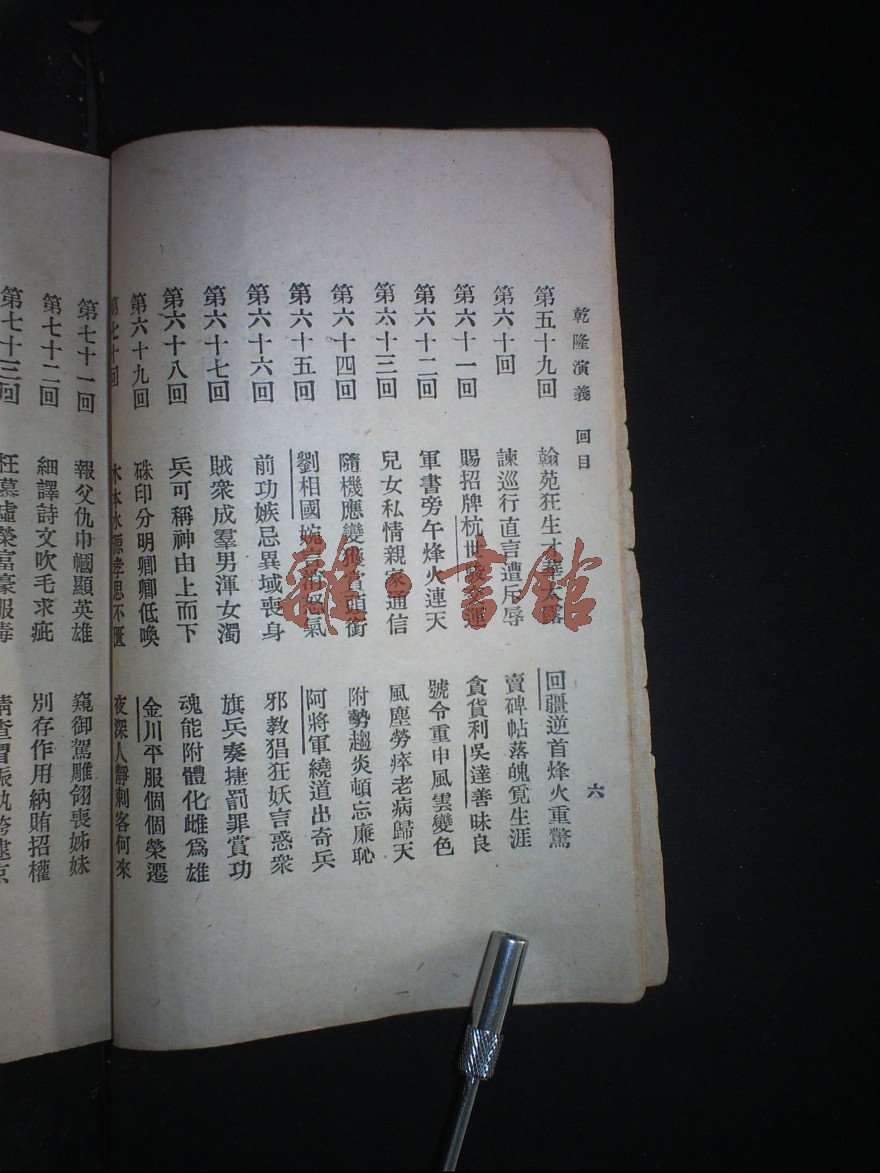 乾隆演義 回目 六
第五十九回 翰苑狂生才華太露 回疆逆首烽火重驚
第六十回 諫巡行直言遭斥辱 賣碑帖落魄冤生涯
第六十一回 賜招牌杭世駿交運 貪貨利吳達善昧良
第六十二回 軍書旁午烽火連天 號令重申風雲變色
第六十三回 兒女私情親家通信 風塵勞瘁老病歸天
第六十四回 隨機應變獲首頭銜 附勢趨炎頓忘廉恥
第六十五回 劉相國婉言消怒氣 阿將軍繞道出奇兵
第六十六回 前功嫉忌異域喪身 邪教猖狂妖言惑衆
第六十七回 賊衆成羣男渾女濁 旗兵奏捷罰罪賞功
第六十八回 兵可稱神由上而下 魂能附體化雌爲雄
第六十九回 硃印分明卿卿低喚 金川平服個個榮遷
第七十回 木本水源孝思不匱 夜深人靜刺客何來
第七十一回 報父仇巾幗顯英雄 窺御駕雕翎喪姊妹
第七十二回 細譯詩文吹毛求疵 別存作用納賄招權
第七十三回 枉慕虛榮富豪服毒
雜·書館